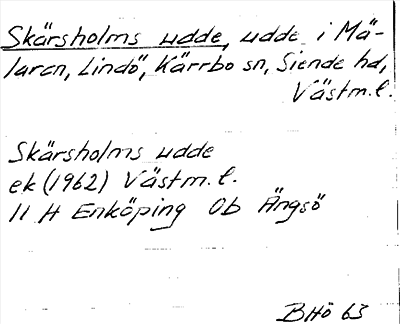 Skärsholms udde, udde i Mä-
laren, Lindö, Kärrbo sn, Siende hd,
Västm.l.
Skärsholms udde
ek (1962) Västm.l.
11 H Enköping 0b Ängsö
BHö 63